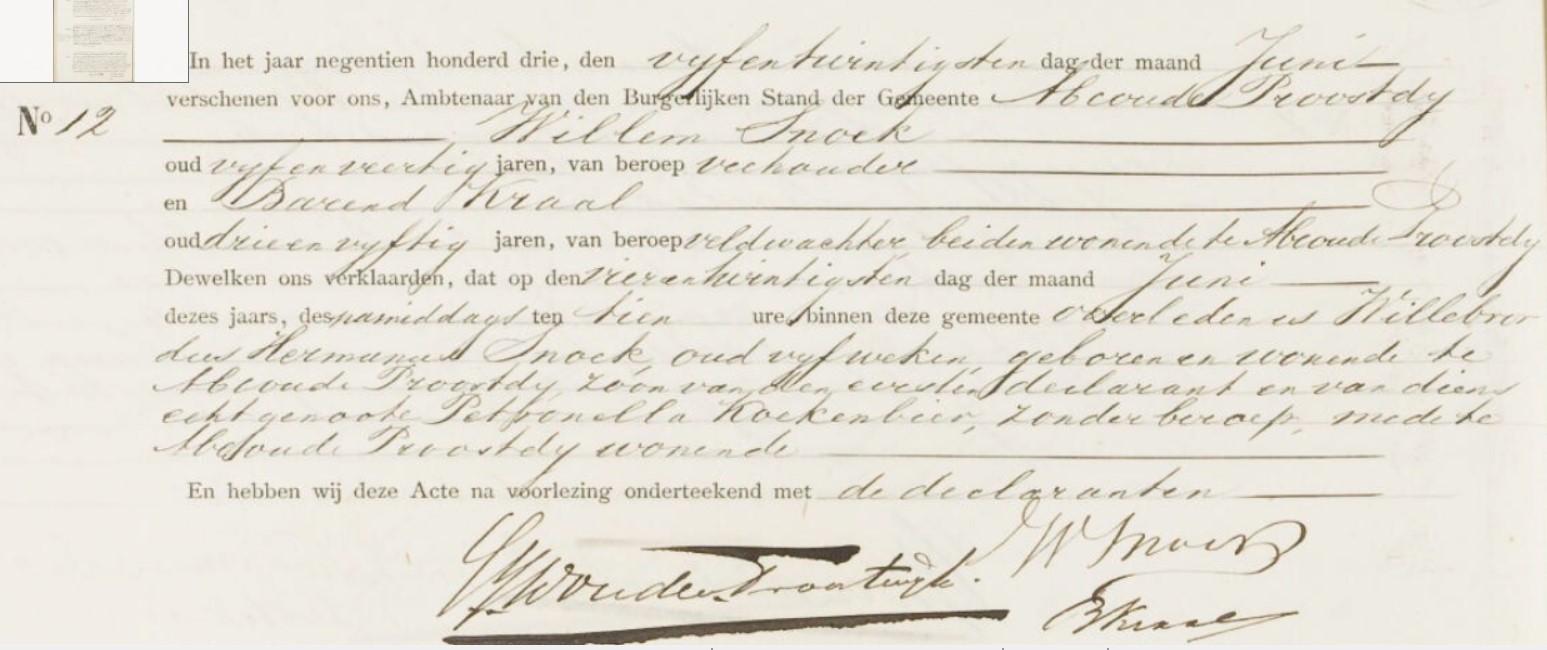 In het jaar negentien honderd drie, den vyfentwintigsten dag der maand Juni
verschenen voor ons, Ambtenaar van den Burgerlijken Stand der Gemeente Abcoude Proostdy
No 12
Willem Snoek
oud vyfenveertig jaren, van beroep veehouder
en Barend Kraal
oud drieenvyftig jaren, van beroep veldwachter beiden wonende te Abcoude Proostdy
Dewelken ons verklaarden, dat op den vierentwintigsten dag der maand Juni
dezes jaars, des namiddags ten tien ure, binnen deze gemeente overleden is Willebror
dus Hermanus Snoek, oud vyf weken, geboren en wonende te
Abcoude Proostdy, zoon van den eersten declarant en van diens
echtgenoote Petronella Koekenbier, zonder beroep, mede te
Abcoude Proostdy wonende
En hebben wij deze Acte na voorlezing onderteekend met de declaranten
W Snoek
BKraal